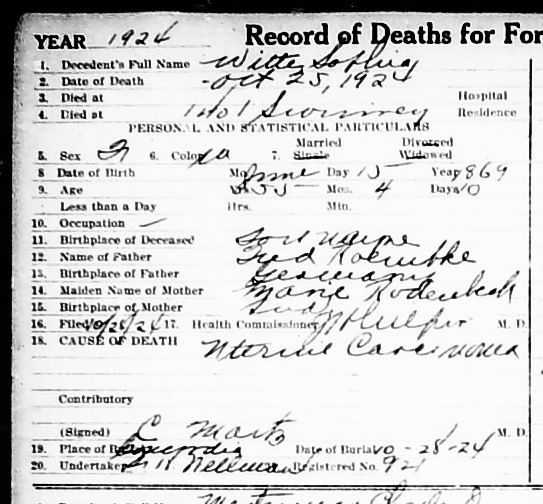 YEAR 1924 Record of Deaths for For
1. Decedent's Full Name Witte Sophia
2. Date of Death Oct 25, 1924
3. Died at Hospital
4. Died at 1701 Swinney Residence
PERSONAL AND STATISTICAL PARTICULARS
Married Divorced
5. Sex F 6. Color W 7. Single Widowed
8 Date of Birth Mo. June Day 15 Year 1869
9. Age Yrs. 55 Mos. 4 Days 10
Less than a Day Hrs. Min.
10. Occupation —
11. Birthplace of Deceased Fort Wayne
12. Name of Father Fred
13. Birthplace of Father Germany
14. Maiden Name of Mother Marie Rodenbeck
15. Birthplace of Mother Ind
16. Filed 10/28/24 17. Health Commissioner M. D.
18. CAUSE OF DEATH Uterine Carcinoma
Contributory
(Signed) C Martz M. D.
19. Place of Burial Concordia Date of Burial 10-28-24
20. Undertaker Registered No. 921